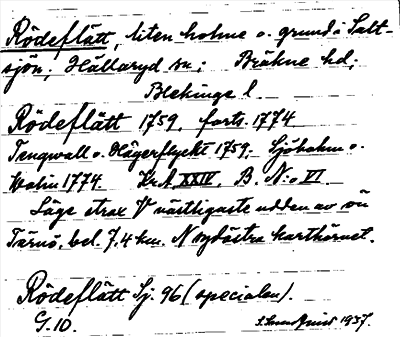 Rödeflätt, liten holme o. grund i Salt-
sjön, Hällaryd sn; Bräkne hd;
Blekinge l.
Rödeflätt 1759, forts. 1774
Tengwall o. Hägerflycht 1759; Sjöholm o.
Wolin 1774. Kr.A. XXIV. B. N:o VI.
Läge strax V västligaste udden av ön
Tärnö, bel. 7,4 km. N sydöstra karthörnet.
Rödeflätt Sj. 96 (specialen).
G. 10. 1937.